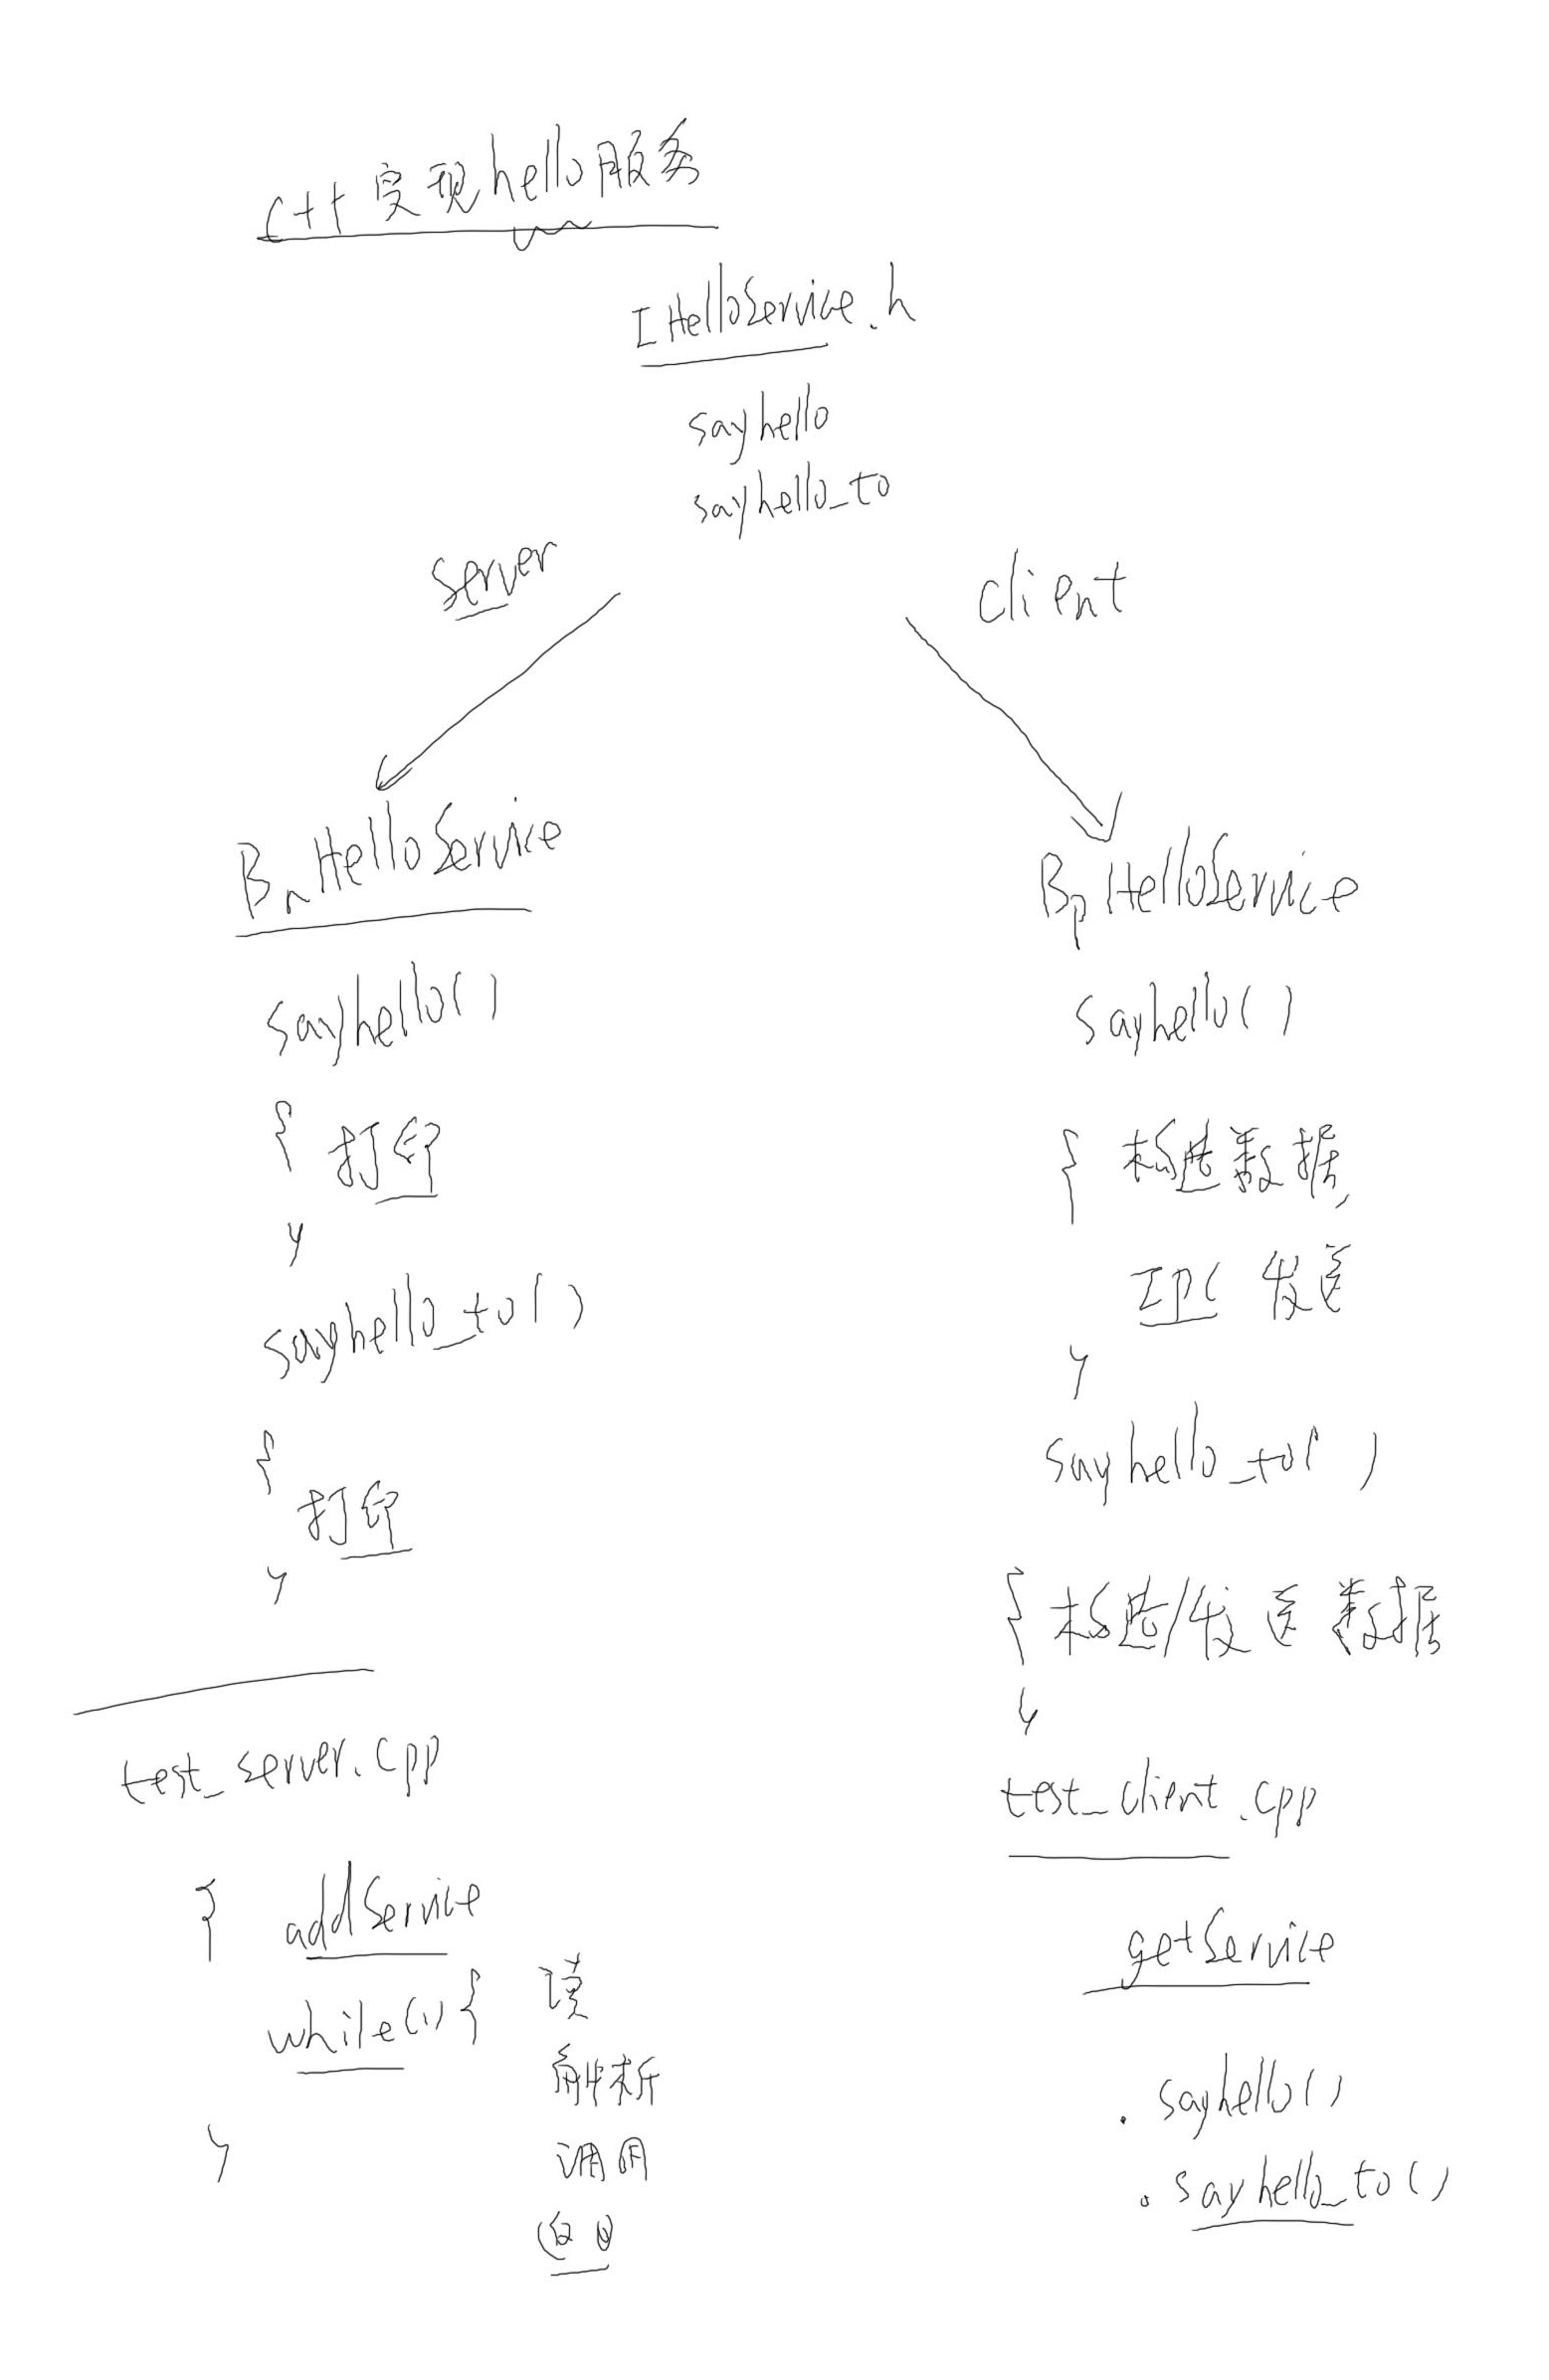 C++实现hello服务
IHelloService.h
sayhello
sayhello_to
server
client
BnHelloService
sayhello()
{ 打印
}
sayhello_to()
{
打印
}
test_server.cpp
{ addService
while(1){ 读
解析
调用
返回
}
BpHelloService
sayhello()
{ 构造数据,
IPC 发送
}
sayhello_to( )
{ 构造/发送数据
}
test_client.cpp
getService
.sayhello()
.sayhello_to()